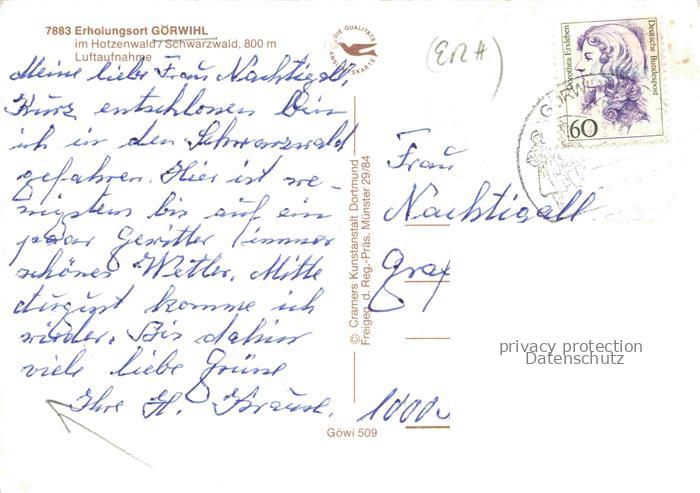 7883 Erholungsort GÖRWIHL
im Hotzenwald/Schwarzwald, 800 m
Luftaufnahme
DIE QUALITÄTS
ANSICHTSKARTE
Meine liebe Frau Nachtigall,
Kurz entschlossen bin
ich in den Schwarzwald
gefahren. Hier ist we-
nigstens bis auf ein
paar Gewitter immer
schönes Wetter. Mitte
August komme ich
wieder. Bis dahin
viele liebe Grüsse
Ihre H. Krause.
© Cramers Kunstanstalt Dortmund
Freigeg. d. Reg.-Präs. Münster 29/84
Göwi 509
Dorothea Erxleben
Deutsche Bundespost
60
Frau
Nachtigall
Graf
1000
privacy protection
Datenschutz